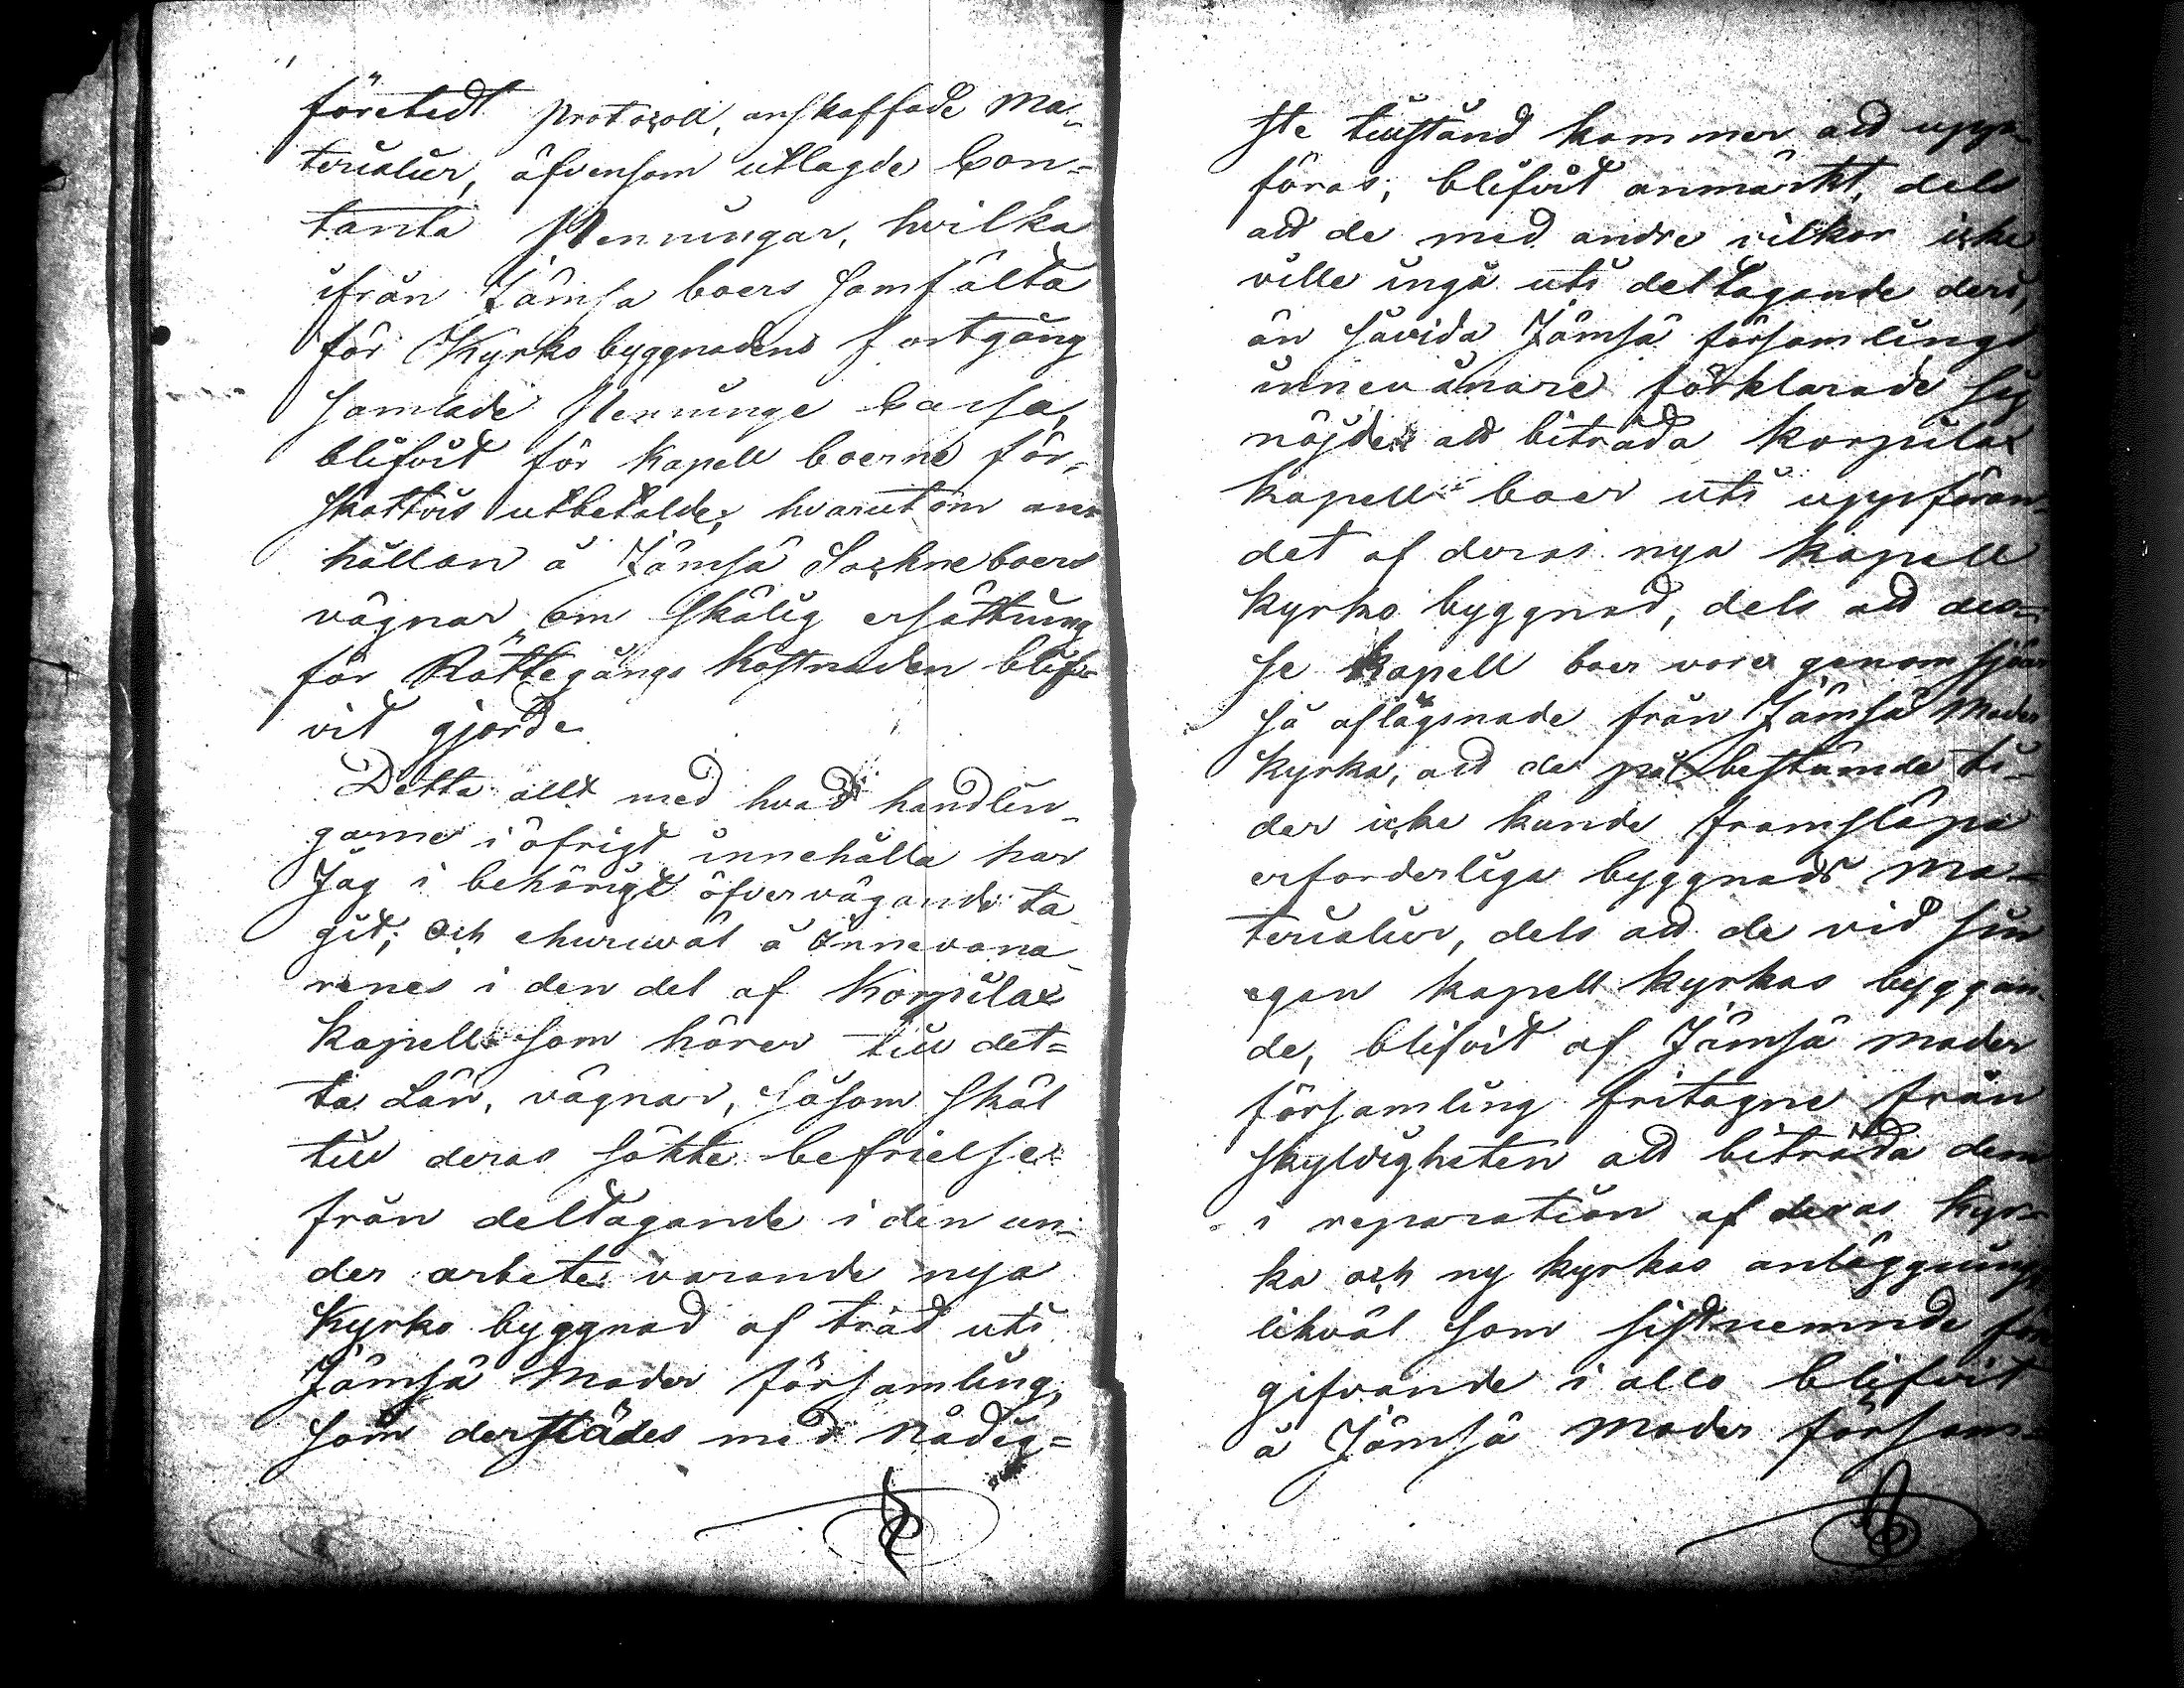 företedt protocoll, anskaffade Ma-
terialier, äfvensom utlagde Con=
tanta Penningar, hvilka
ifrån Jämsä boers samfälta
för Kyrko byggnadens fortgång
samlade Penninge Cassa,
blifvit för kapell boerne för-
skottvis utbetalde; hvarutom an-
hållan å Jämsä Sockneboers
vägnar om skälig ersättning
för Rättegångs Kostnaden blif-
vit gjord.
Detta allt med hvad handlin-
garne i öfrigt innehålla har
Jag i behörigt öfvervägande ta
git; Och ehuruväl å Innevåna-
renes i den del af Korpilax
Kapell som hörer till det=
ta Län, vägnar, såsom skäl
till deras sökte befrielse
från deltagande i den un-
der arbete varande nya
Kyrko byggnad af träd uti
Jämsä Moder församling,
som derstädes med Nådig=
ste tillstånd kommer att upp-
föras, blifvit anmärkt, dels
att de med andre vilkor icke
ville ingå uti deltagande deri,
än såvida Jämsä församlings
innevånare förklarade sig
nöjde att biträda Korpilax
Kapell boer uti uppföran-
det af deras nya Kapell
Kyrko byggnad, dels att des-
se Kapell boer vore genom sjöar
så aflägsnade från Jämsä Moder
Kyrka, att de på bestämde ti-
der icke kunde framsläpa
erforderliga byggnads Ma-
terialier, dels att de vid sin
egen kapell kyrkas byggan-
de, blifvit af Jämsä moder
församling fritagne från
skyldigheten att biträda dem
i reparation af deras Kyr-
ka och ny kyrkas anläggning,
likväl som sistnemnde före
gifvande i allo blifvit
å Jämsä Moder försams-